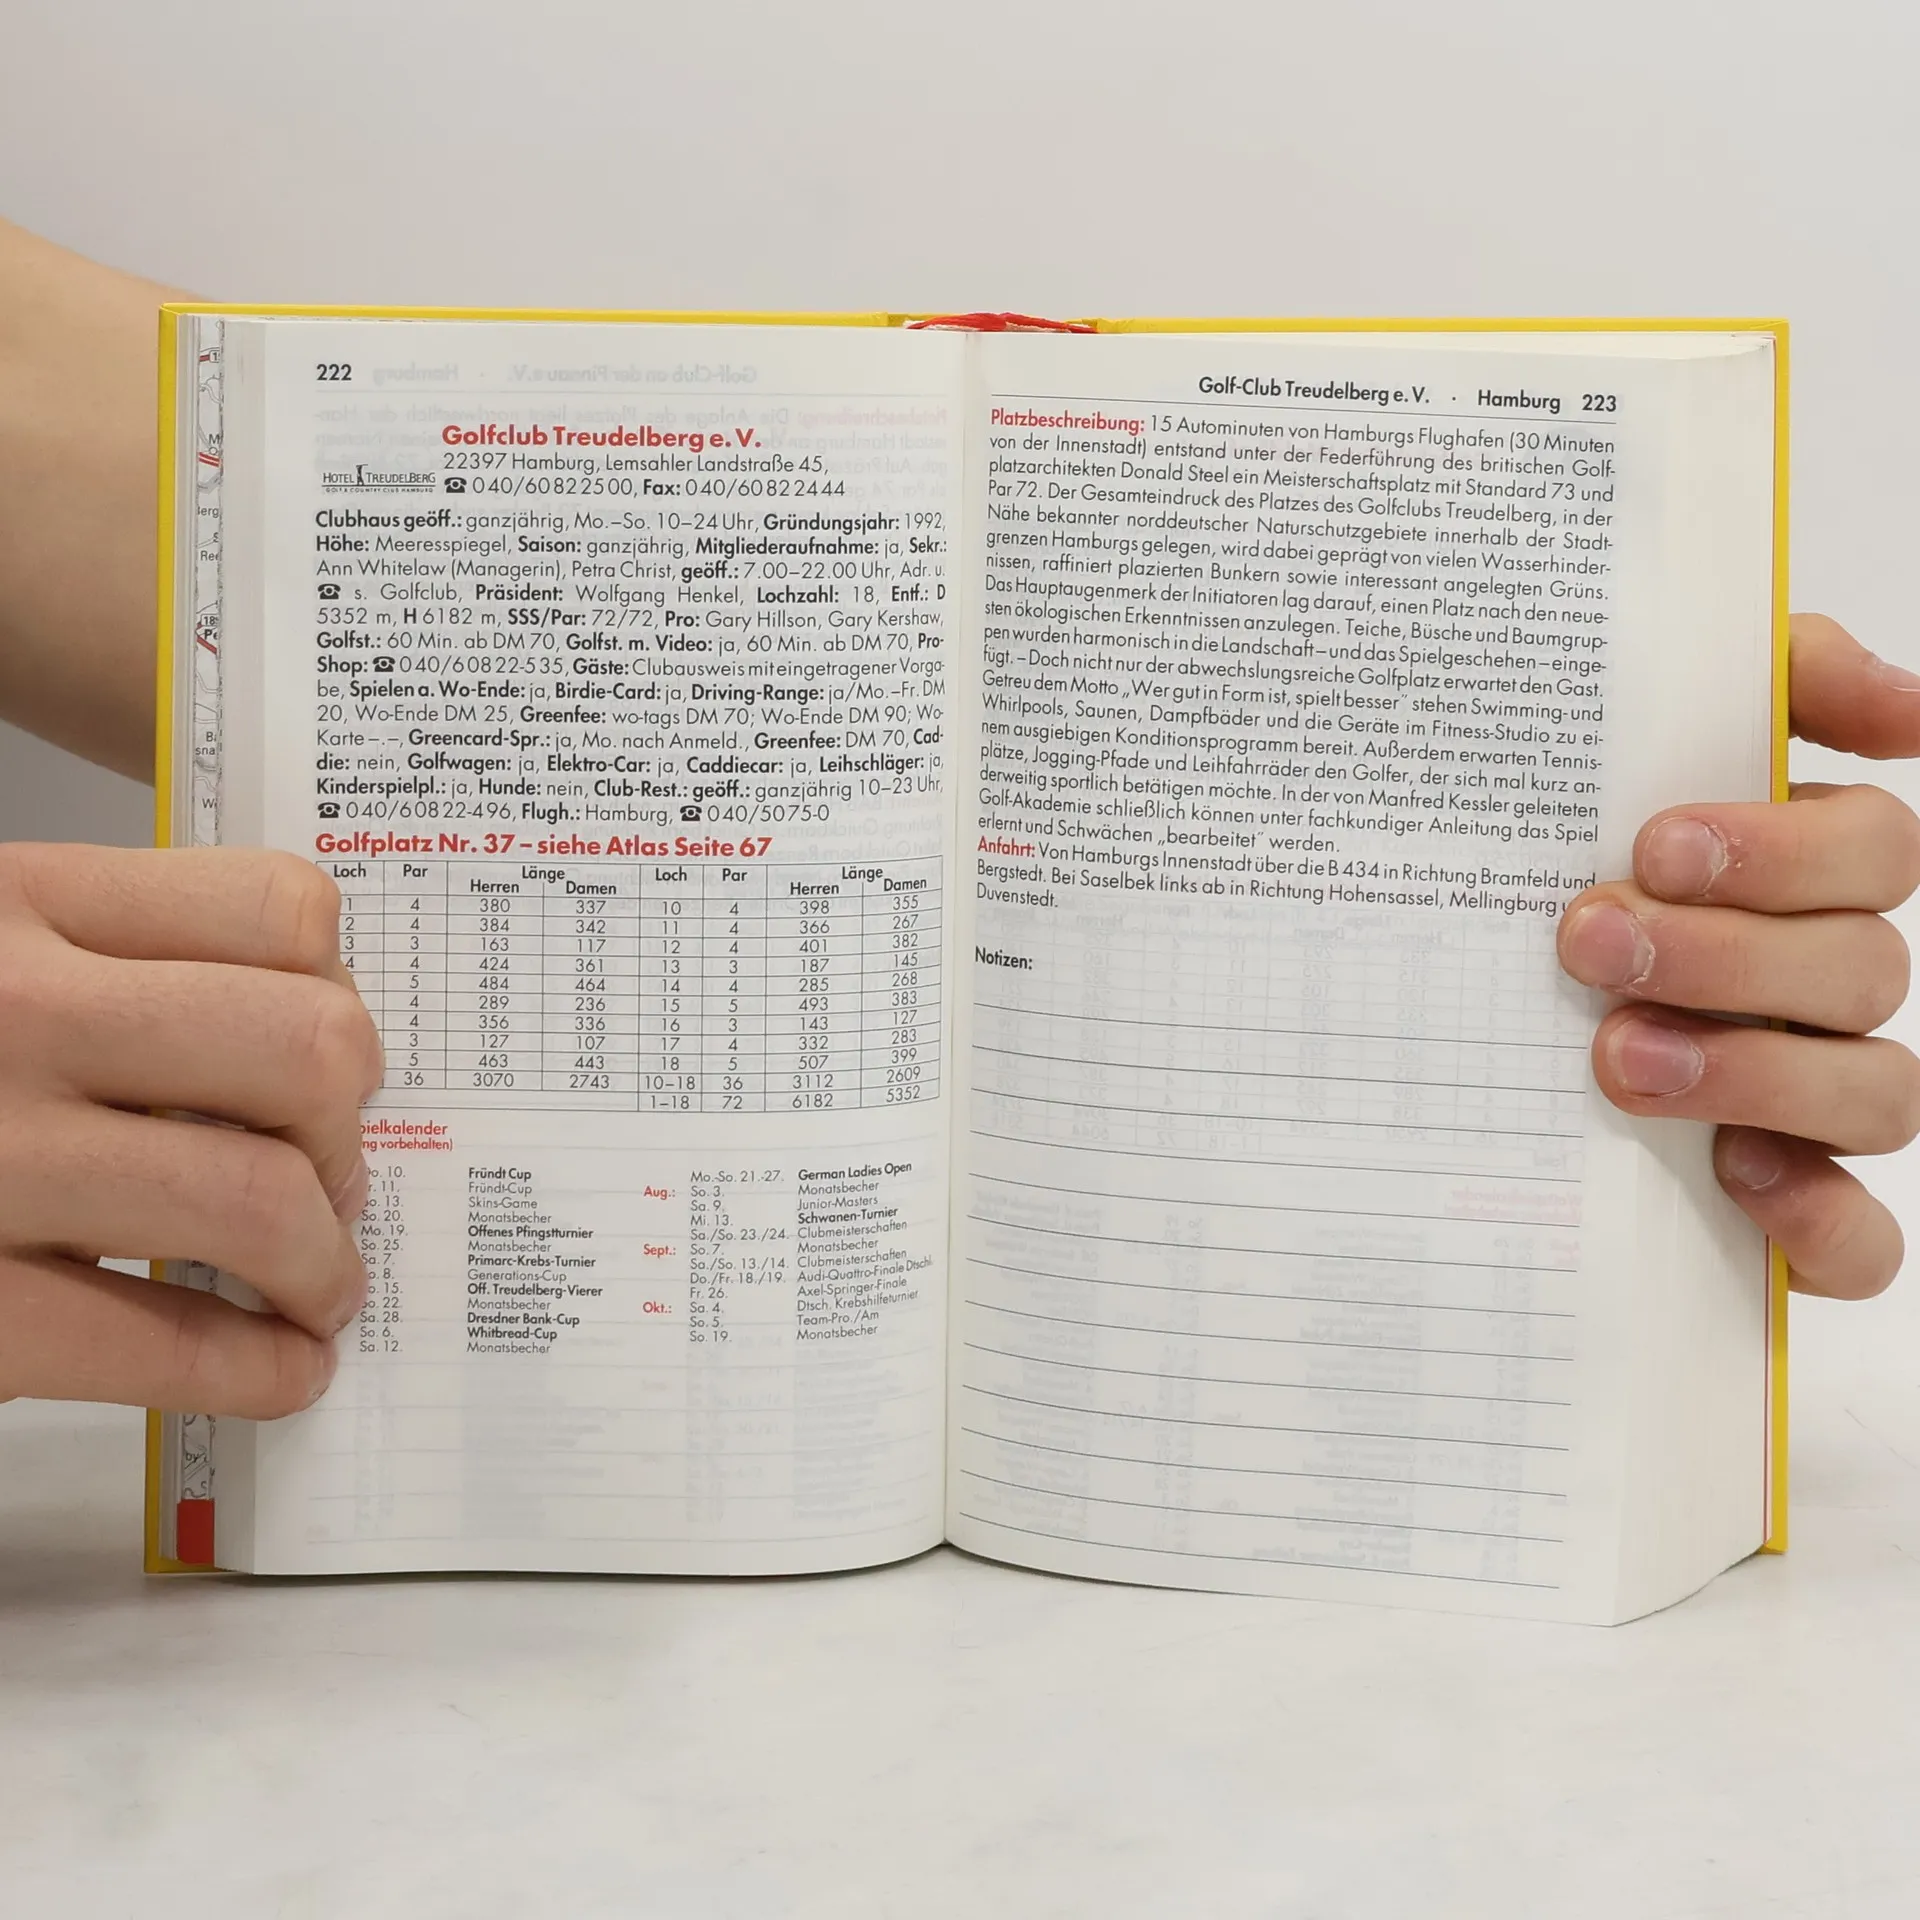 222
Golfclub Treudelberg e. V.
22397 Hamburg, Lemsahler Landstraße 45,
HOTEL TREUDELBERG
GOLF & COUNTRY CLUB HAMBURG
☎ 040/60822500, Fax: 040/60822444
Clubhaus geöff.: ganzjährig, Mo.–So. 10–24 Uhr, Gründungsjahr: 1992,
Höhe: Meeresspiegel, Saison: ganzjährig, Mitgliederaufnahme: ja, Sekr.:
Ann Whitelaw (Managerin), Petra Christ, geöff.: 7.00–22.00 Uhr, Adr. u.
☎ s. Golfclub, Präsident: Wolfgang Henkel, Lochzahl: 18, Entf.: D
5352 m, H 6182 m, SSS/Par: 72/72, Pro: Gary Hillson, Gary Kershaw,
Golfst.: 60 Min. ab DM 70, Golfst. m. Video: ja, 60 Min. ab DM 70, Pro-
Shop: ☎ 040/60822-535, Gäste: Clubausweis mit eingetragener Vorga-
be, Spielen a. Wo-Ende: ja, Birdie-Card: ja, Driving-Range: ja/Mo.–Fr. DM
20, Wo-Ende DM 25, Greenfee: wo-tags DM 70; Wo-Ende DM 90; Wo-
Karte –.–, Greencard-Spr.: ja, Mo. nach Anmeld., Greenfee: DM 70, Cad-
die: nein, Golfwagen: ja, Elektro-Car: ja, Caddiecar: ja, Leihschläger: ja,
Kinderspielpl.: ja, Hunde: nein, Club-Rest.: geöff.: ganzjährig 10–23 Uhr,
☎ 040/60822-496, Flugh.: Hamburg, ☎ 040/5075-0
Golfplatz Nr. 37 – siehe Atlas Seite 67
Loch Par Länge Loch Par Länge
Herren Damen Herren Damen
1 4 380 337 10 4 398 355
2 4 384 342 11 4 366 267
3 3 163 117 12 4 401 382
4 4 424 361 13 3 187 145
5 484 464 14 4 285 268
4 289 236 15 5 493 383
4 356 336 16 3 143 127
3 127 107 17 4 332 283
5 463 443 18 5 507 399
36 3070 2743 10–18 36 3112 2609
1–18 72 6182 5352
pielkalender
ng vorbehalten)
10. Fründt Cup Mo.-So. 21.-27. German Ladies Open
11. Fründt-Cup Aug.: So. 3. Monatsbecher
13. Skins-Game Sa. 9. Junior-Masters
So. 20. Monatsbecher Mi. 13. Schwanen-Turnier
Mo. 19. Offenes Pfingstturnier Sa./So. 23./24. Clubmeisterschaften
So. 25. Monatsbecher Sept.: So. 7. Monatsbecher
Sa. 7. Primarc-Krebs-Turnier Sa./So. 13./14. Clubmeisterschaften
8. Generations-Cup Do./Fr. 18./19. Audi-Quattro-Finale Dtschl.
15. Off. Treudelberg-Vierer Fr. 26. Axel-Springer-Finale
So. 22. Monatsbecher Okt.: Sa. 4. Dtsch. Krebshilfeturnier
Sa. 28. Dresdner Bank-Cup So. 5. Team-Pro./Am
So. 6. Whitbread-Cup So. 19. Monatsbecher
Sa. 12. Monatsbecher
Golf-Club Treudelberg e. V. · Hamburg 223
Platzbeschreibung: 15 Autominuten von Hamburgs Flughafen (30 Minuten
von der Innenstadt) entstand unter der Federführung des britischen Golf-
platzarchitekten Donald Steel ein Meisterschaftsplatz mit Standard 73 und
Par 72. Der Gesamteindruck des Platzes des Golfclubs Treudelberg, in der
Nähe bekannter norddeutscher Naturschutzgebiete innerhalb der Stadt-
grenzen Hamburgs gelegen, wird dabei geprägt von vielen Wasserhinder-
nissen, raffiniert plazierten Bunkern sowie interessant angelegten Grüns.
Das Hauptaugenmerk der Initiatoren lag darauf, einen Platz nach den neue-
sten ökologischen Erkenntnissen anzulegen. Teiche, Büsche und Baumgrup-
pen wurden harmonisch in die Landschaft – und das Spielgeschehen – einge-
fügt. – Doch nicht nur der abwechslungsreiche Golfplatz erwartet den Gast.
Getreu dem Motto „Wer gut in Form ist, spielt besser" stehen Swimming- und
Whirlpools, Saunen, Dampfbäder und die Geräte im Fitness-Studio zu ei-
nem ausgiebigen Konditionsprogramm bereit. Außerdem erwarten Tennis-
plätze, Jogging-Pfade und Leihfahrräder den Golfer, der sich mal kurz an-
derweitig sportlich betätigen möchte. In der von Manfred Kessler geleiteten
Golf-Akademie schließlich können unter fachkundiger Anleitung das Spiel
erlernt und Schwächen „bearbeitet" werden.
Anfahrt: Von Hamburgs Innenstadt über die B 434 in Richtung Bramfeld und
Bergstedt. Bei Saselbek links ab in Richtung Hohensassel, Mellingburg
Duvenstedt.
Notizen: